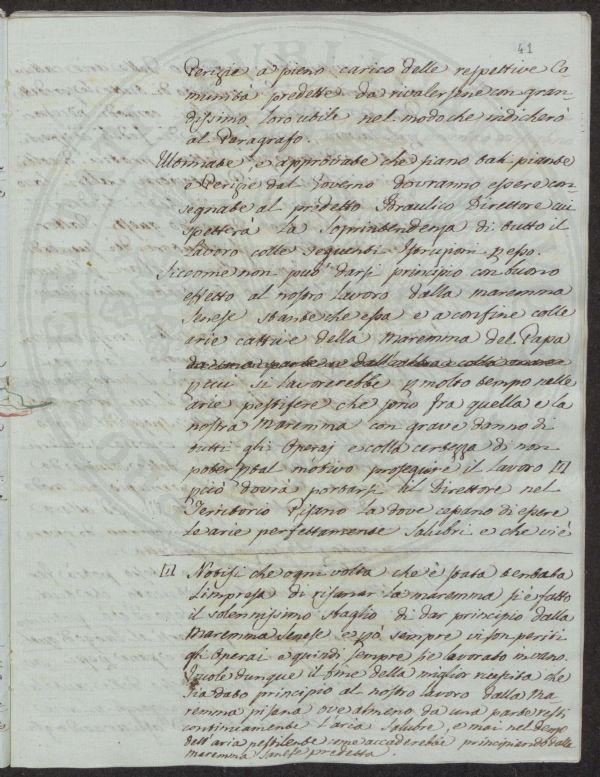 41
Perizie a pieno carico delle respettive Co-
munità predette da rivalersene con gran-
dissimo loro utile nel modo che indicherò
al Paragrafo.
Ultimate, e approvate che siano tali piante
e Perizie dal Governo dovranno essere con-
segnate al predetto Idraulico Direttore cui
spetterà la Soprintendenza di tutto il
lavoro colle seguenti Istruzioni
Siccome non può darsi principio con buono
effetto al nostro lavoro dalla maremma
Senese stante che essa è a confine colle
arie cattive della Maremma del Papa
da una parte e dall'altra colla
si lavorerebbe p molto tempo nelle
arie pestifere che sono fra quella e la
nostra Maremma con grave danno di
tutti gli Operaj e colla certezza di non
poter p tal motivo proseguire il lavoro [1]
pciò dovrà portarsi il Direttore nel
Territorio Pisano là dove cessano di essere
le arie perfettamente salubri e che vi è
[1] Notisi che ogni volta che è stata tentata
l'impresa di risanar la maremma si è fatto
il solennissimo sbaglio di dar principio dalla
Maremma Senese e pciò sempre vi son periti
gli Operai e quindi sempre si è lavorato invano.
Vuole dunque il fine della miglior riuscita che
sia dato principio al nostro lavoro dalla Ma-
remma pisana ove almeno da una parte resti
continuamente l'aria salubre, e mai nel tempo
dell'aria pestilente come accaderebbe principiando dalla
maremma Senese predetta.